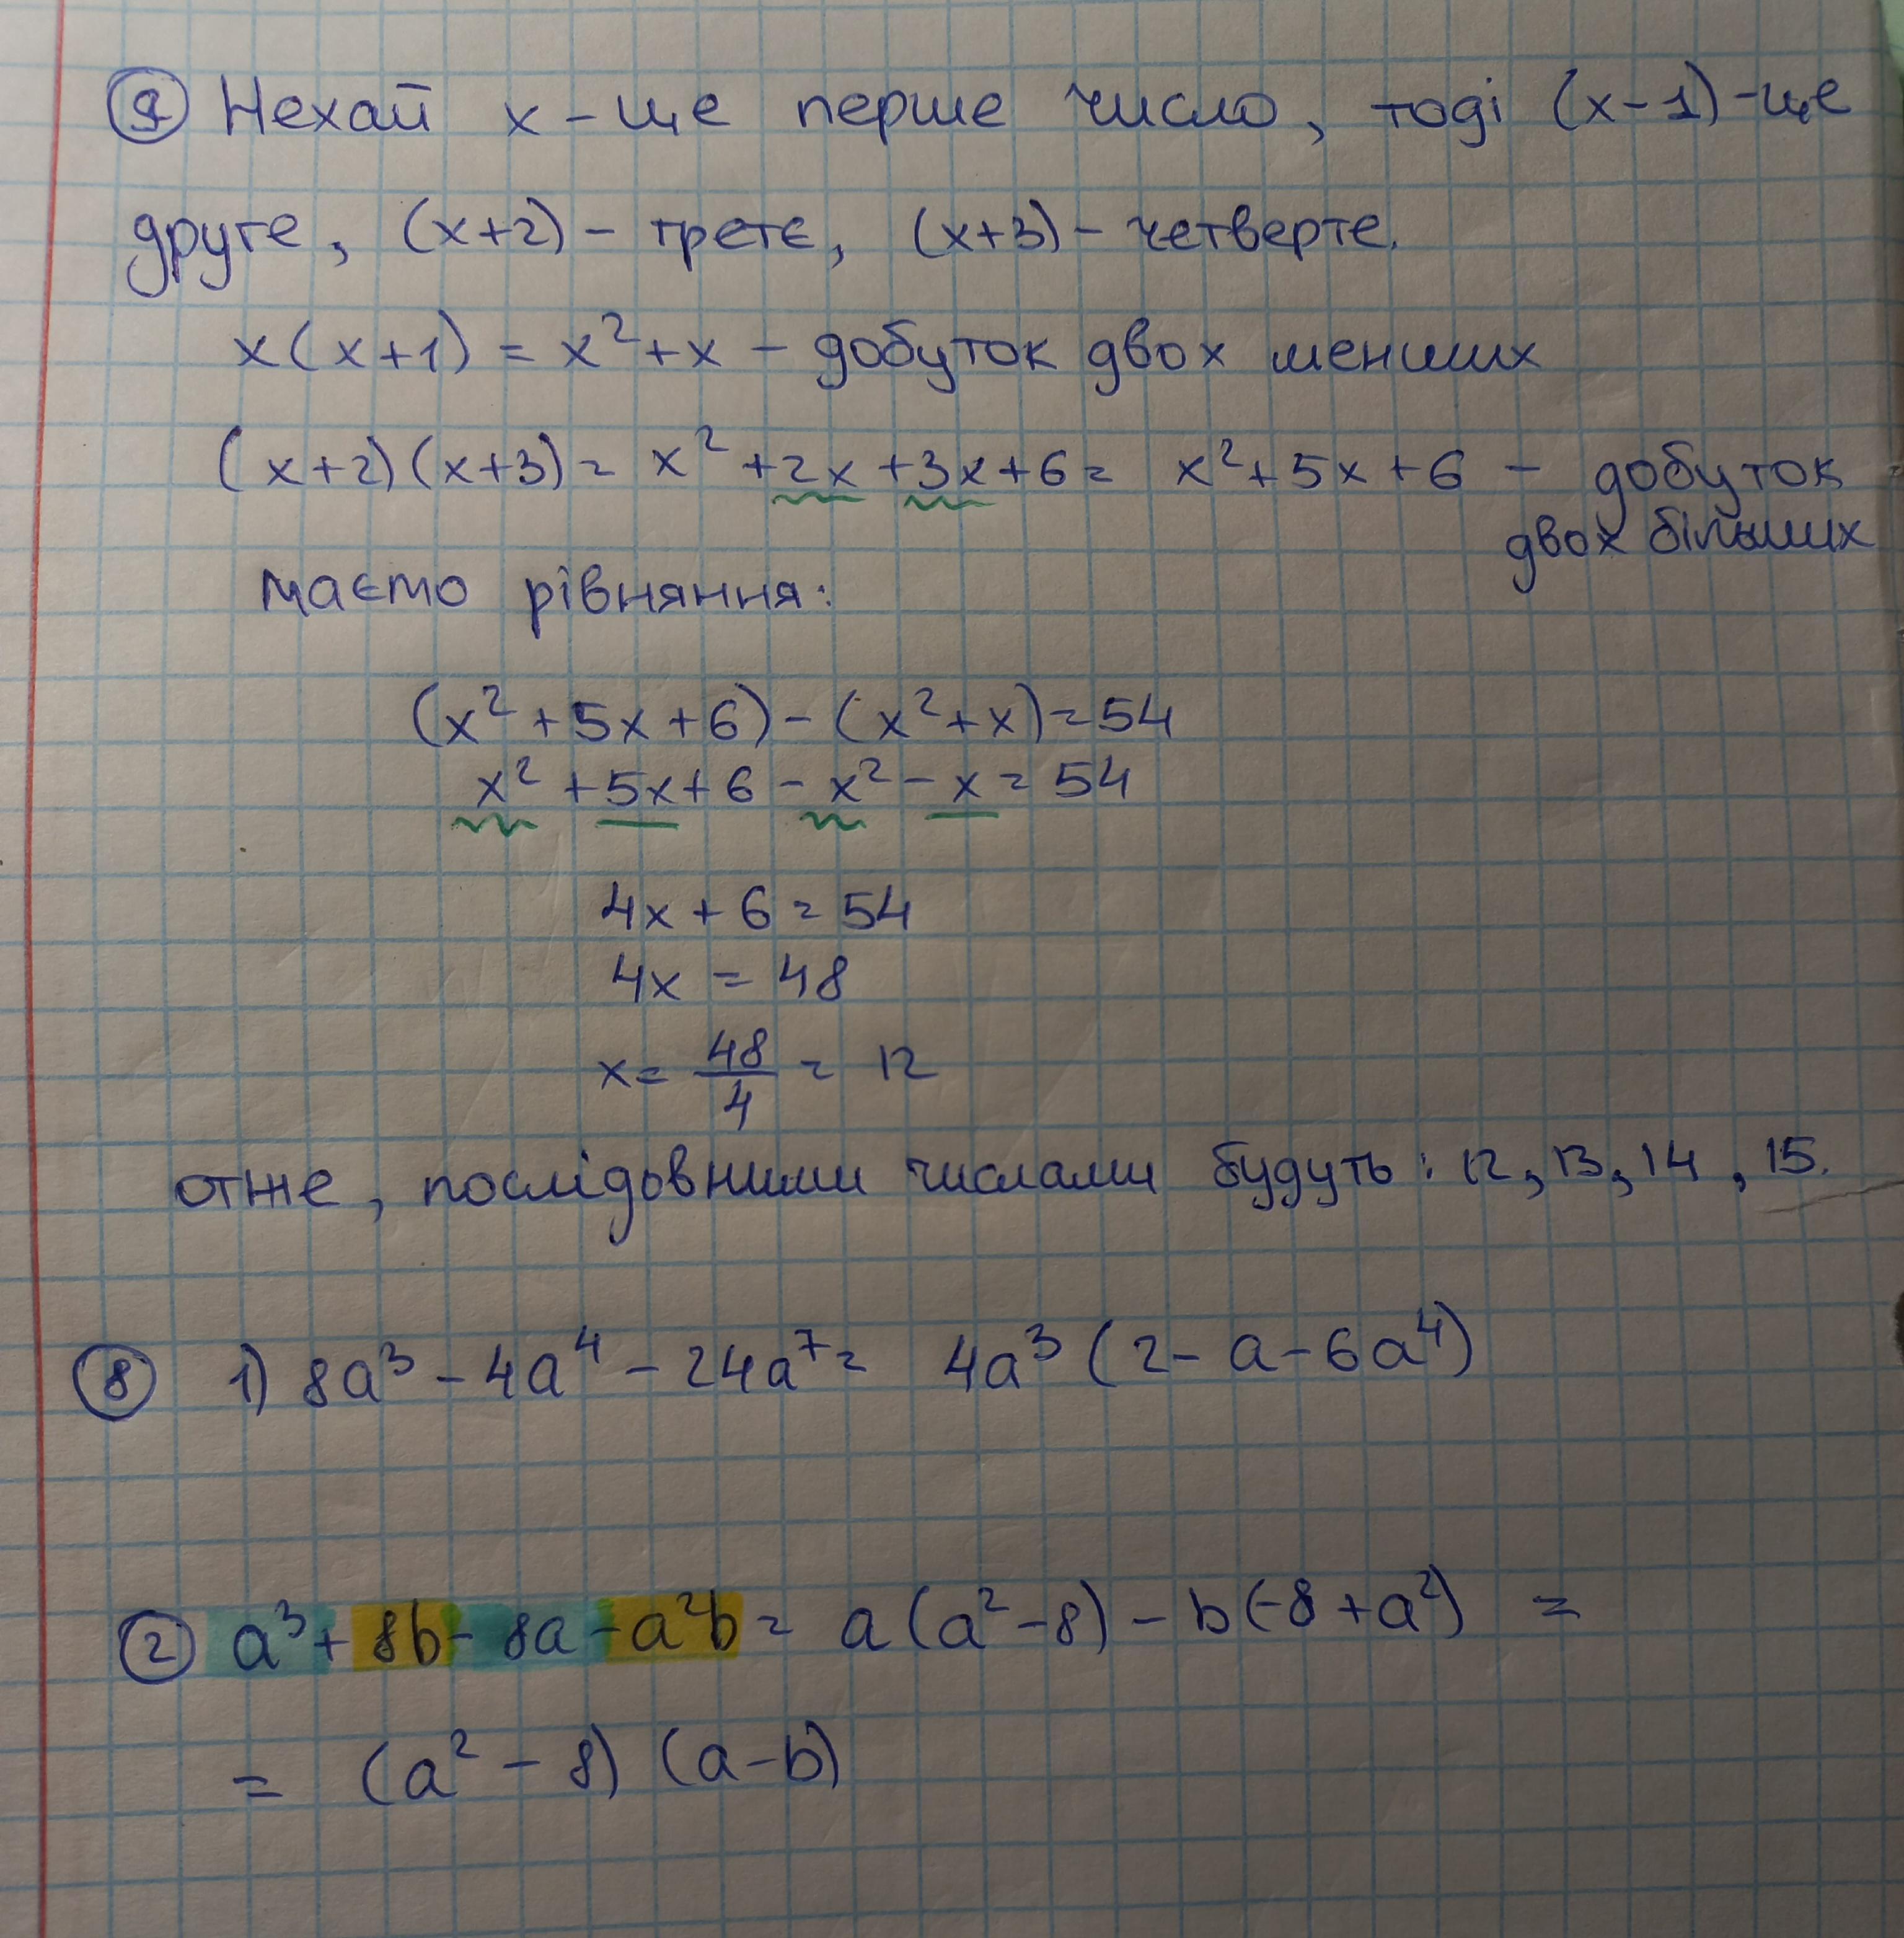 9 Нехай x - це перше число, тоді (x-1) - це
друге, (x+2) - третє, (x+3) - четверте.
x(x+1) = x² + x - добуток двох менших
(x+2)(x+3) = x² + 2x + 3x + 6 = x² + 5x + 6 - добуток
двох більших
маємо рівняння:
(x² + 5x + 6) - (x² + x) = 54
x² + 5x + 6 - x² - x = 54
4x + 6 = 54
4x = 48
x = 48/4 = 12
отже, послідовними числами будуть: 12, 13, 14, 15.
8 1) 8a³ - 4a⁴ - 24a⁷ = 4a³ (2 - a - 6a⁴)
2 a³ + 8b - 8a - a²b = a(a² - 8) - b(-8 + a²) =
= (a² - 8) (a - b)